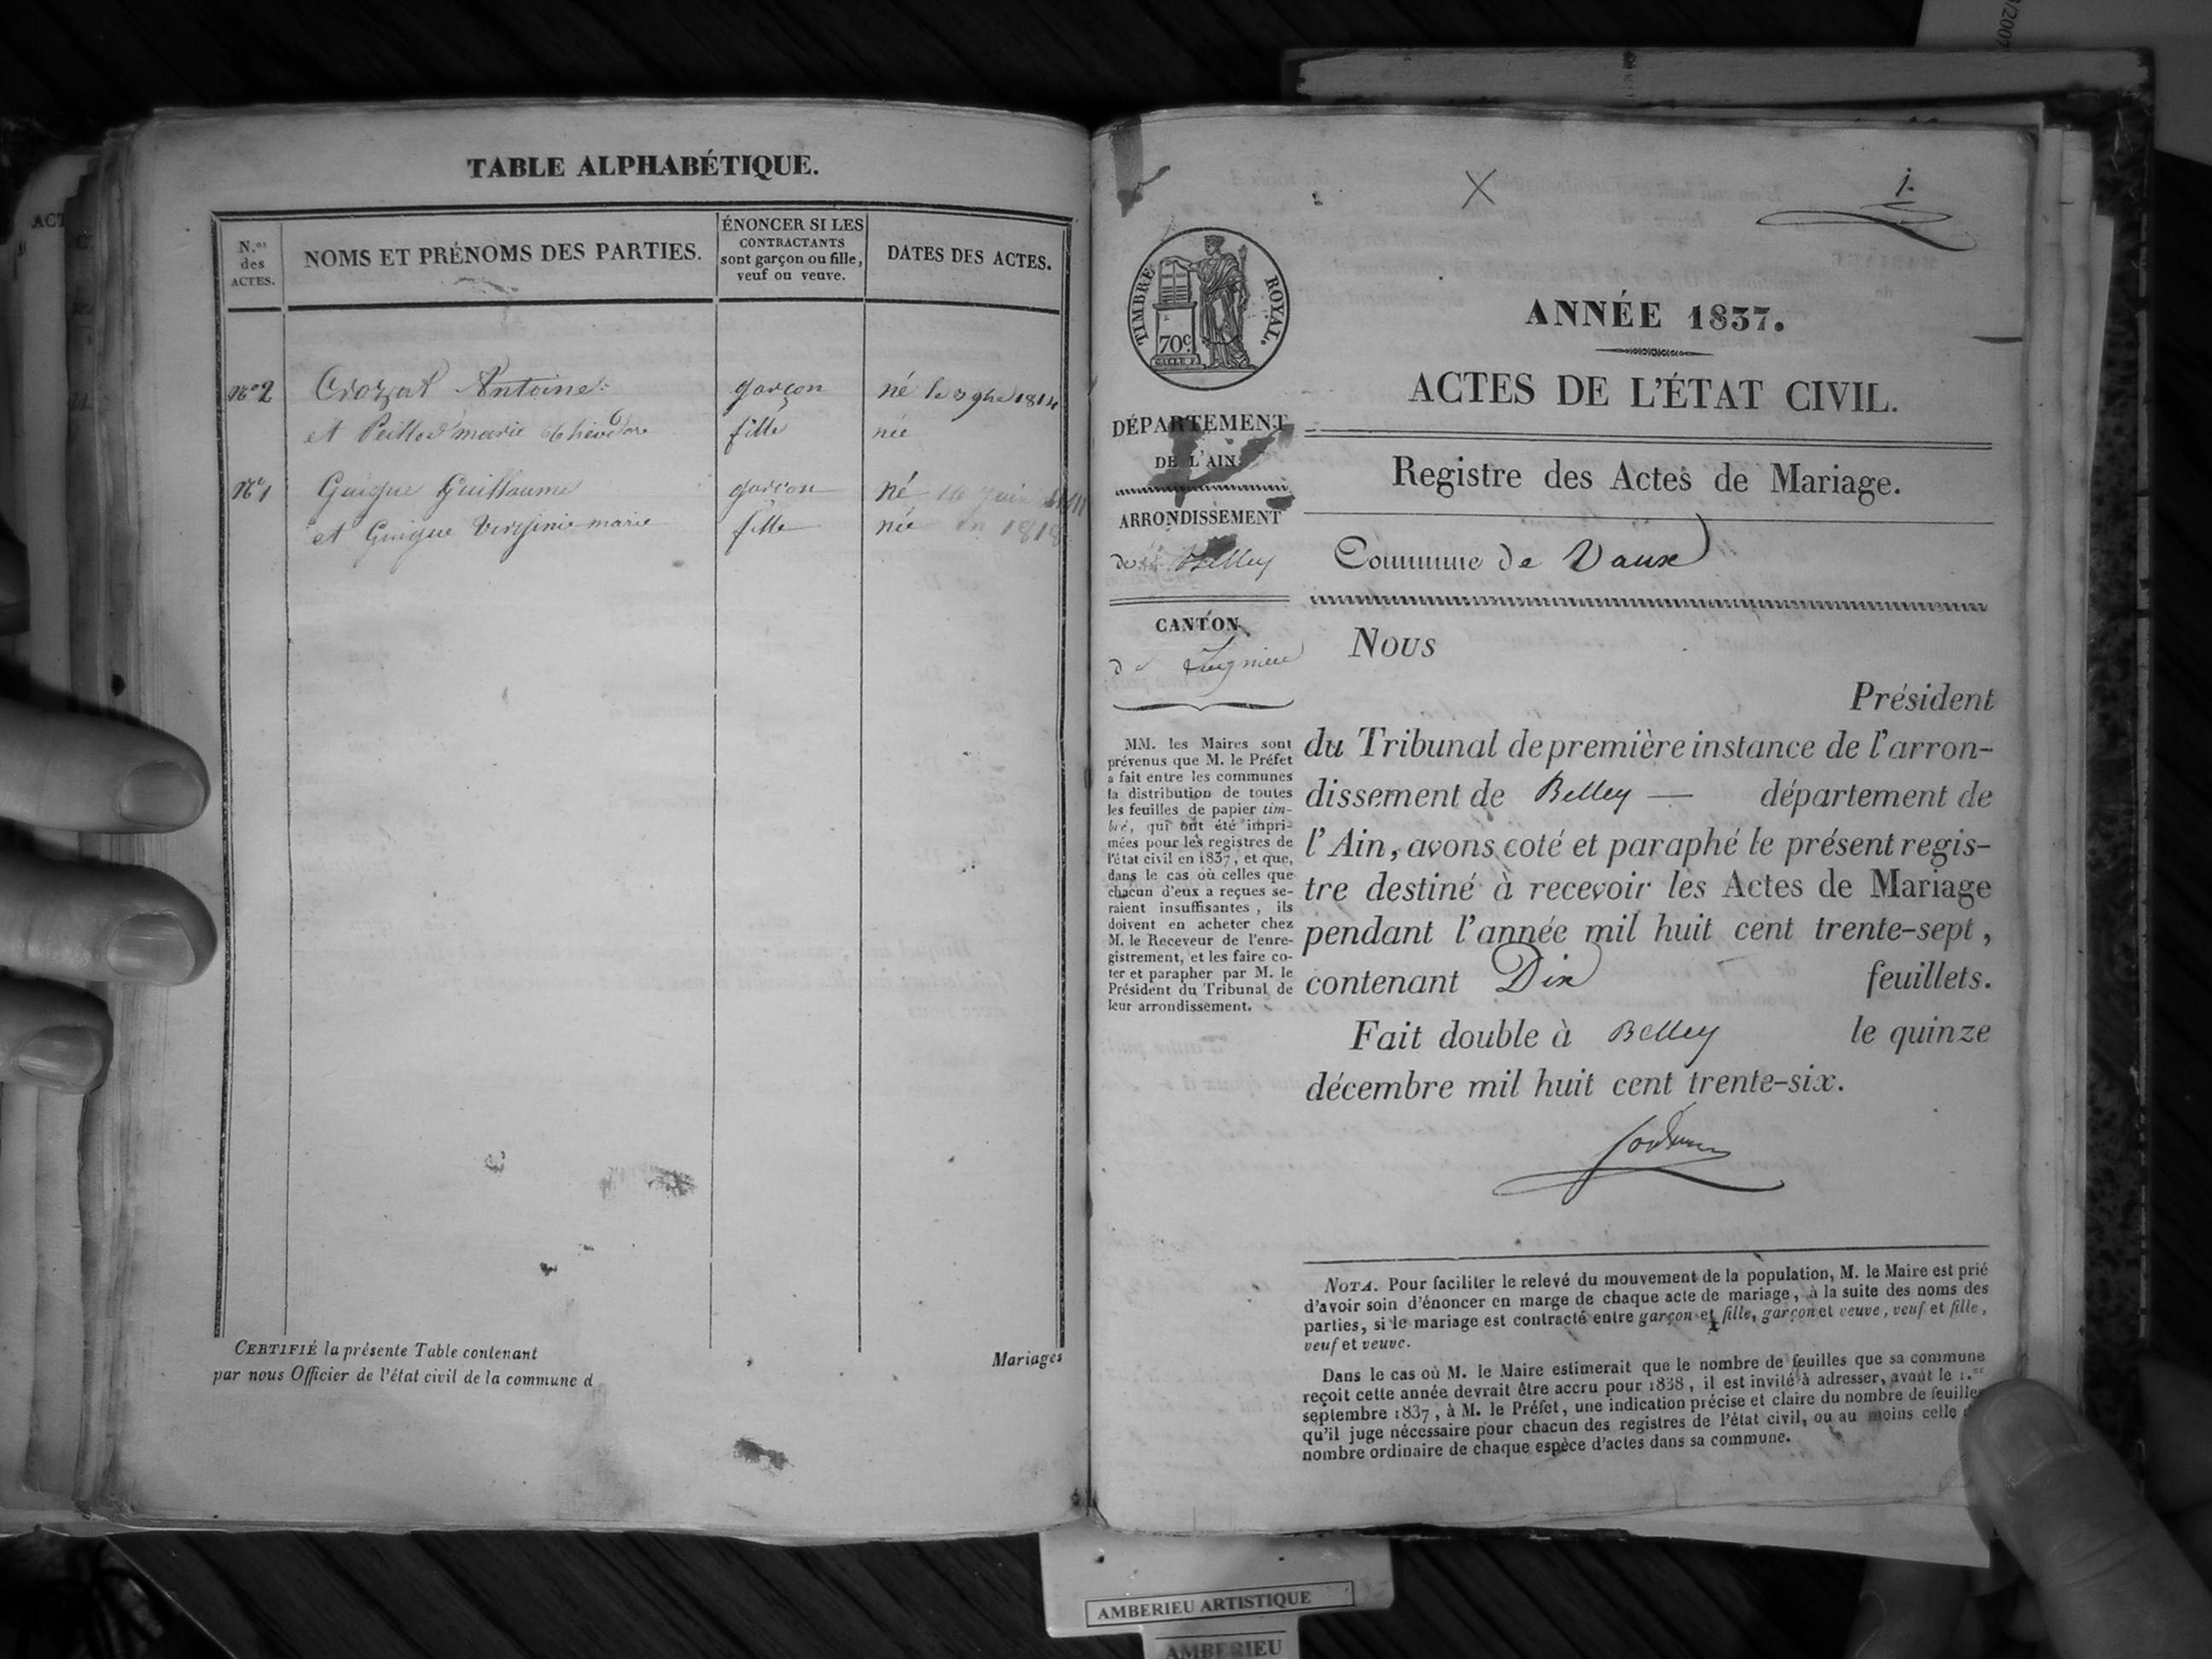 TABLE ALPHABÉTIQUE.
N.os des ACTES.
NOMS ET PRÉNOMS DES PARTIES.
ÉNONCER SI LES CONTRACTANTS sont garçon ou fille, veuf ou veuve.
DATES DES ACTES.
N° 2 Crozat Antoine garçon né le 3 9bre 1814
et marie fille née
N° 1 Guigue Guillaume garçon né juin
et Guigue Virginie marie fille née en 1818
CERTIFIÉ la présente Table contenant Mariages
par nous Officier de l'état civil de la commune d
1.
TIMBRE ROYAL.
70c.
ANNÉE 1837.
ACTES DE L'ÉTAT CIVIL.
DÉPARTEMENT
DE L'AIN.
Registre des Actes de Mariage.
ARRONDISSEMENT
de Belley
Commune de Vaux
CANTON
de Lagnieu
MM. les Maires sont
prévenus que M. le Préfet
a fait entre les communes
la distribution de toutes
les feuilles de papier tim-
bré, qui ont été impri-
mées pour les registres de
l'état civil en 1837, et que,
dans le cas où celles que
chacun d'eux a reçues se-
raient insuffisantes, ils
doivent en acheter chez
M. le Receveur de l'enre-
gistrement, et les faire co-
ter et parapher par M. le
Président du Tribunal de
leur arrondissement.
Nous
Président
du Tribunal de première instance de l'arron-
dissement de Belley — département de
l'Ain, avons coté et paraphé le présent regis-
tre destiné à recevoir les Actes de Mariage
pendant l'année mil huit cent trente-sept,
contenant Dix feuillets.
Fait double à Belley le quinze
décembre mil huit cent trente-six.
NOTA. Pour faciliter le relevé du mouvement de la population, M. le Maire est prié
d'avoir soin d'énoncer en marge de chaque acte de mariage, à la suite des noms des
parties, si le mariage est contracté entre garçon et fille, garçon et veuve, veuf et fille,
veuf et veuve.
Dans le cas où M. le Maire estimerait que le nombre de feuilles que sa commune
reçoit cette année devrait être accru pour 1838, il est invité à adresser, avant le 1.er
septembre 1837, à M. le Préfet, une indication précise et claire du nombre de feuilles
qu'il juge nécessaire pour chacun des registres de l'état civil, ou au moins celle
nombre ordinaire de chaque espèce d'actes dans sa commune.
AMBERIEU ARTISTIQUE
AMBERIEU